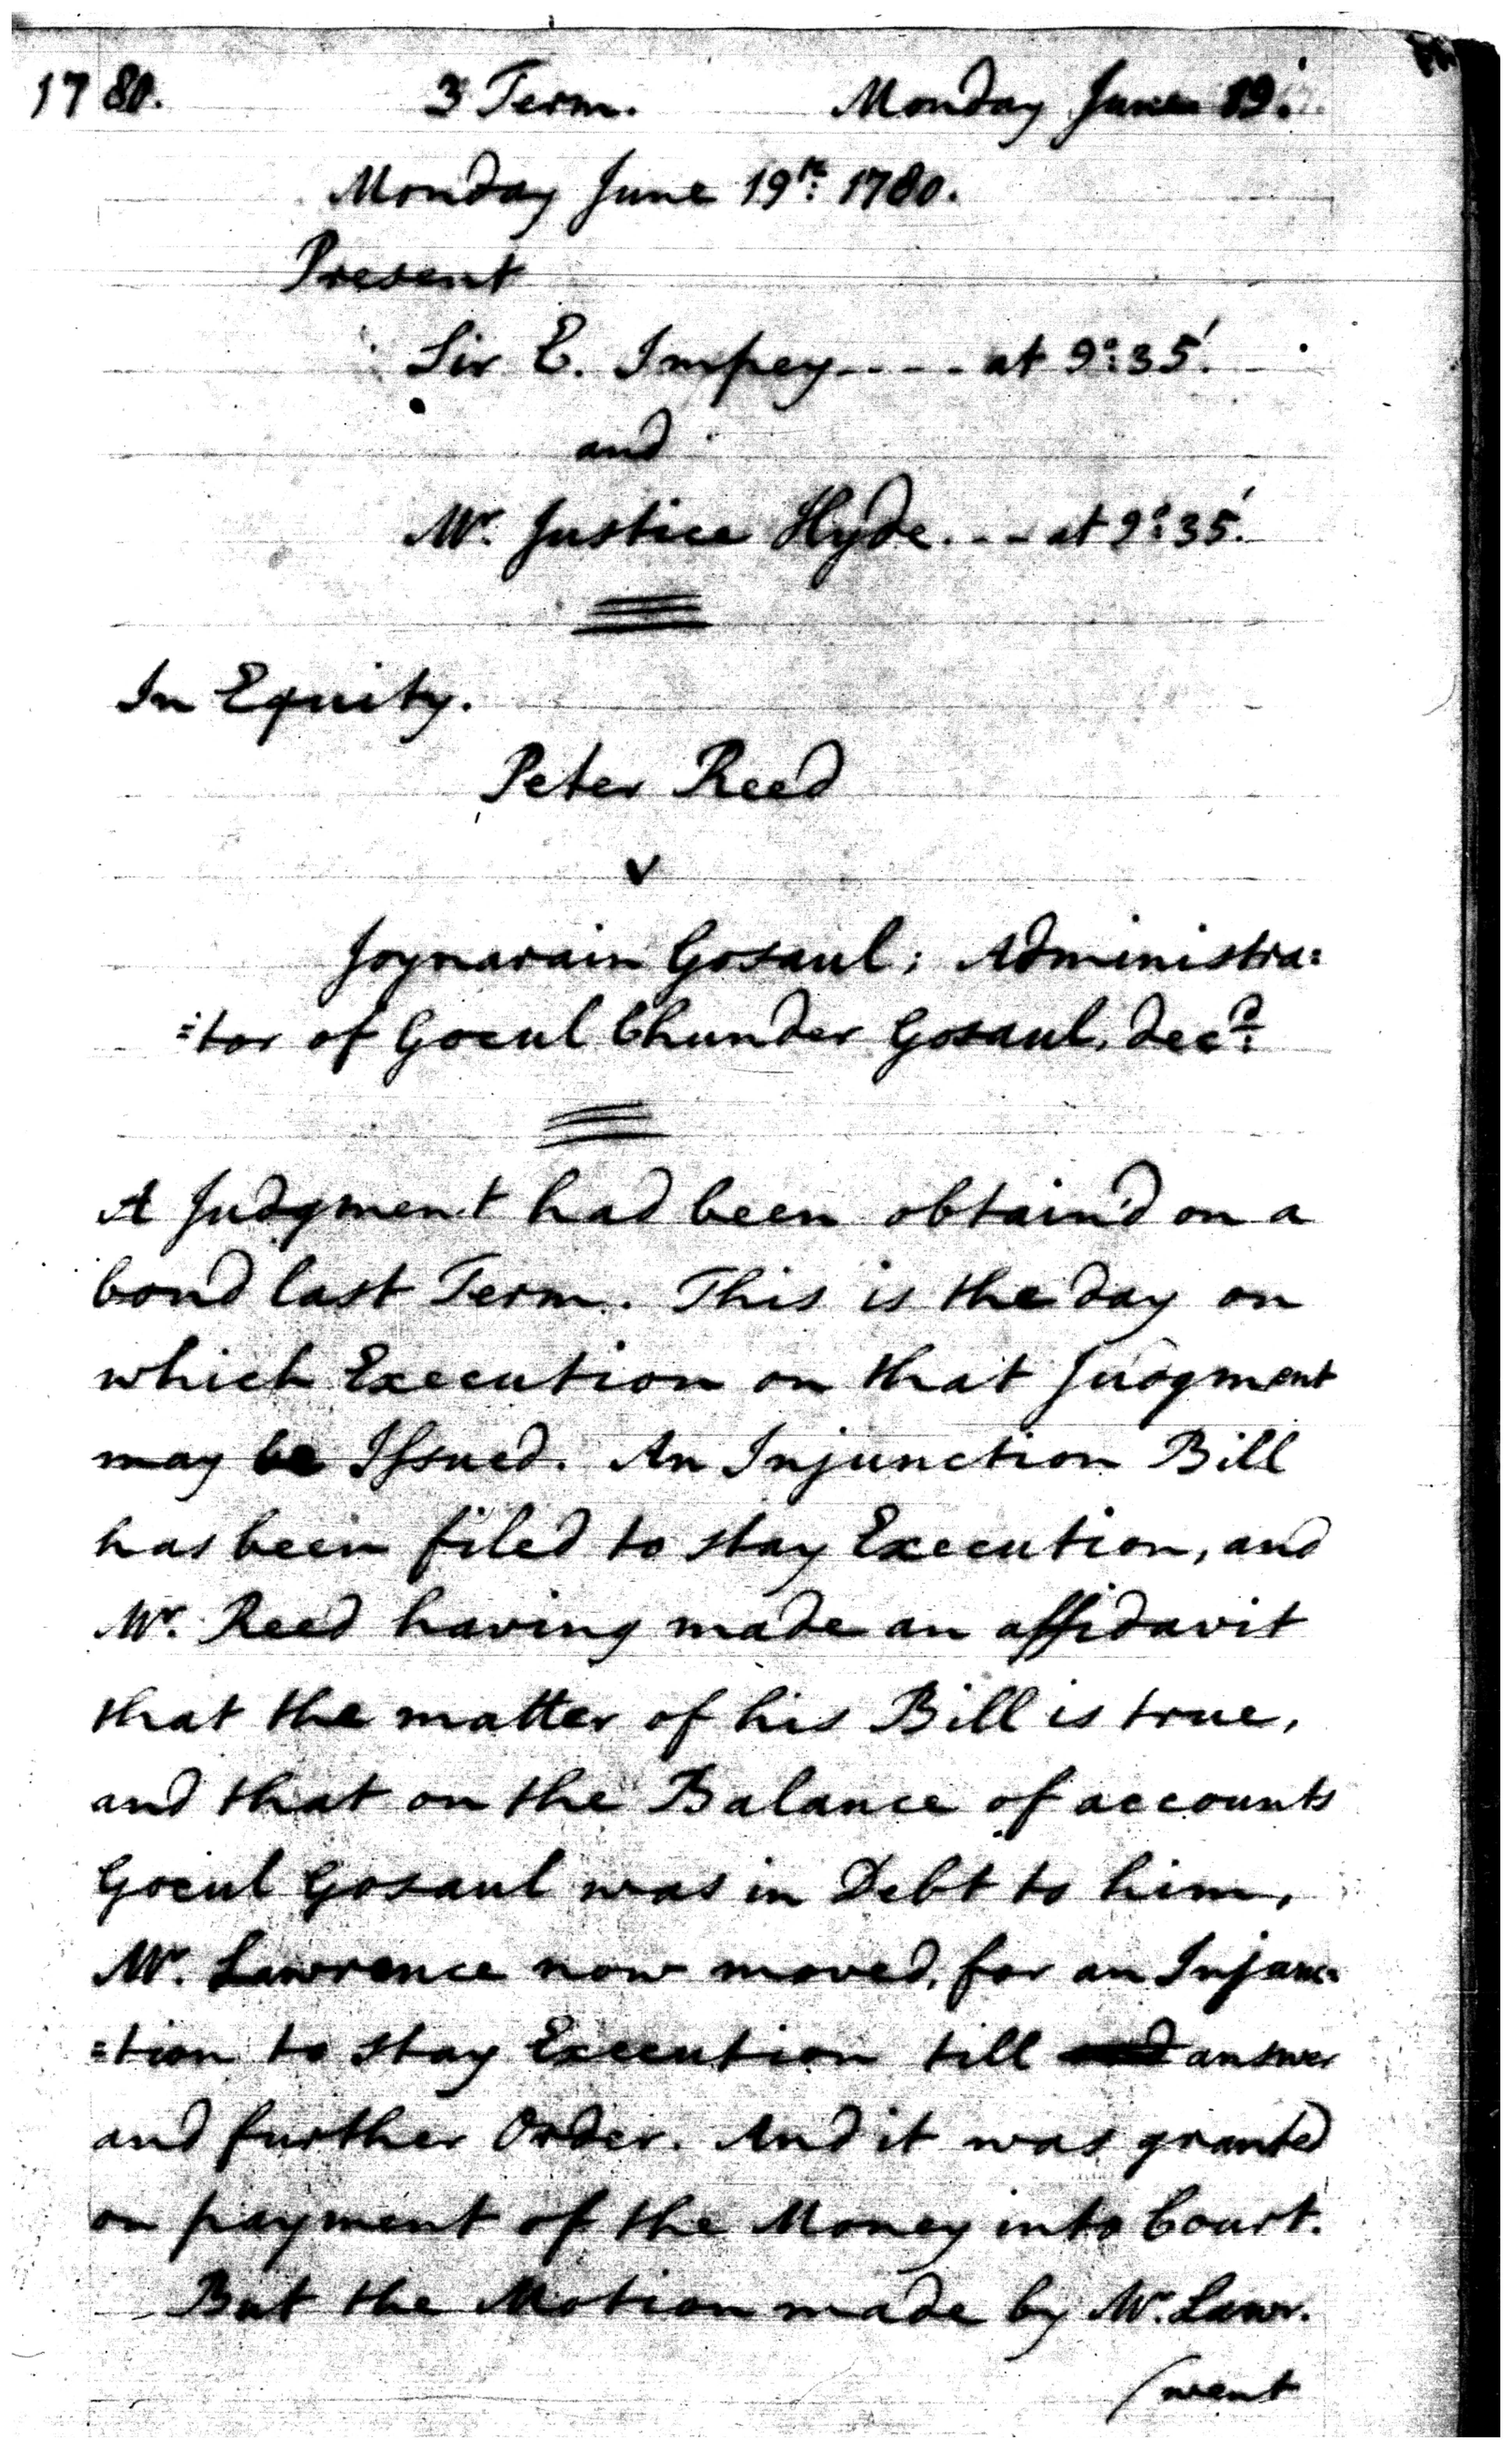 1780. 3 Term. Monday June 19.
Monday June 19th: 1780.
Present
Sir E. Impey---- at 9°:35'.
and
Mr. Justice Hyde.--- at 9°:35'.
In Equity.
Peter Reed
v
Joynarain Gosaul; Administra=
=tor of Gocul Chunder Gosaul, decd:
A Judgment had been obtain'd on a
bond last Term. This is the day on
which Execution on that Judgment
may be Issued. An Injunction Bill
has been filed to stay Execution, and
Mr. Reed having made an affidavit
that the matter of his Bill is true,
and that on the Balance of accounts
Gocul Gosaul was in Debt to him,
Mr. Lawrence now moved, for an Injunc=
=tion to stay Execution till answer
and further Order. And it was granted
on payment of the Money into Court.
But the Motion made by Mr. Lawr.
(went